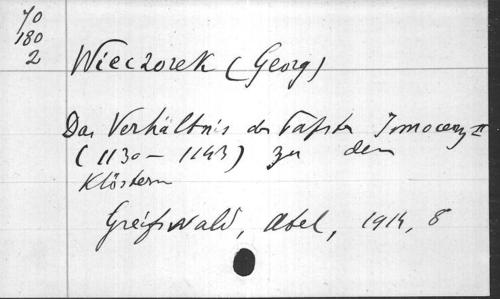 70
180
2
Wieczorek (Georg)
Das Verhältnis des Papstes Innocenz II
(1130 - 1143) zu den
Klöstern
Greifswald, Abel, 1914, 8